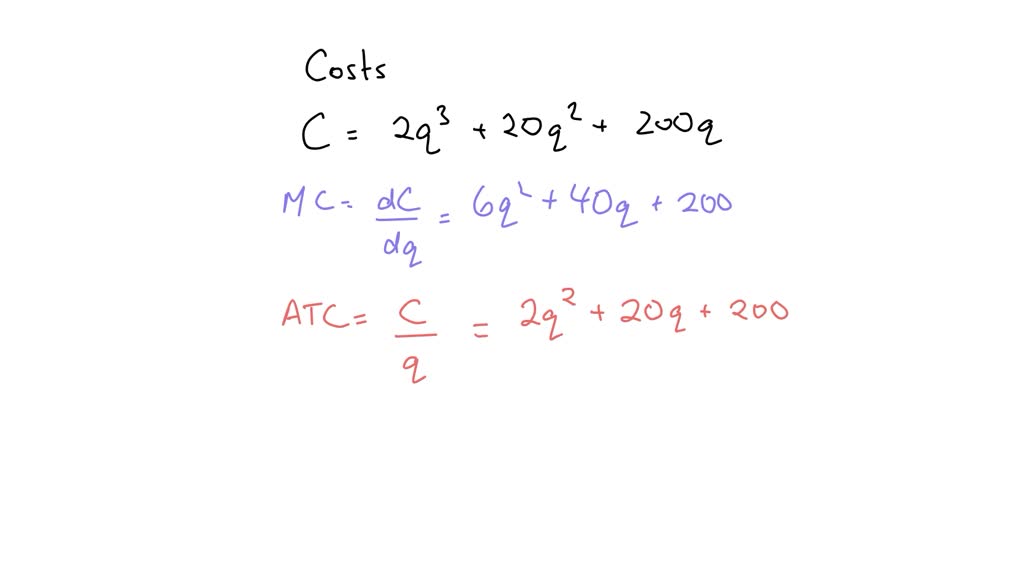 Costs
C = 2q³ + 20q² + 200q
MC = dC/dq = 6q² + 40q + 200
ATC = C/q = 2q² + 20q + 200